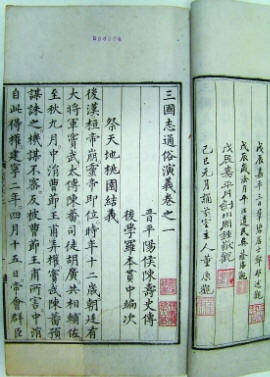 戊辰嘉平月劍川周鍾嶽觀
己巳元月誦芬室主人董康觀
三國志通俗演義卷之一
晉平陽侯陳壽史傳
後學羅本貫中編次
祭天地桃園結義
後漢桓帝崩靈帝即位時年十二歲朝廷有
大將軍竇武太傅陳蕃司徒胡廣共相輔佐
至秋九月中涓曹節王甫弄權竇武陳蕃預
謀誅之機謀不密反被曹節王甫所害中涓
自此得權建寧二年四月十五日帝會群臣